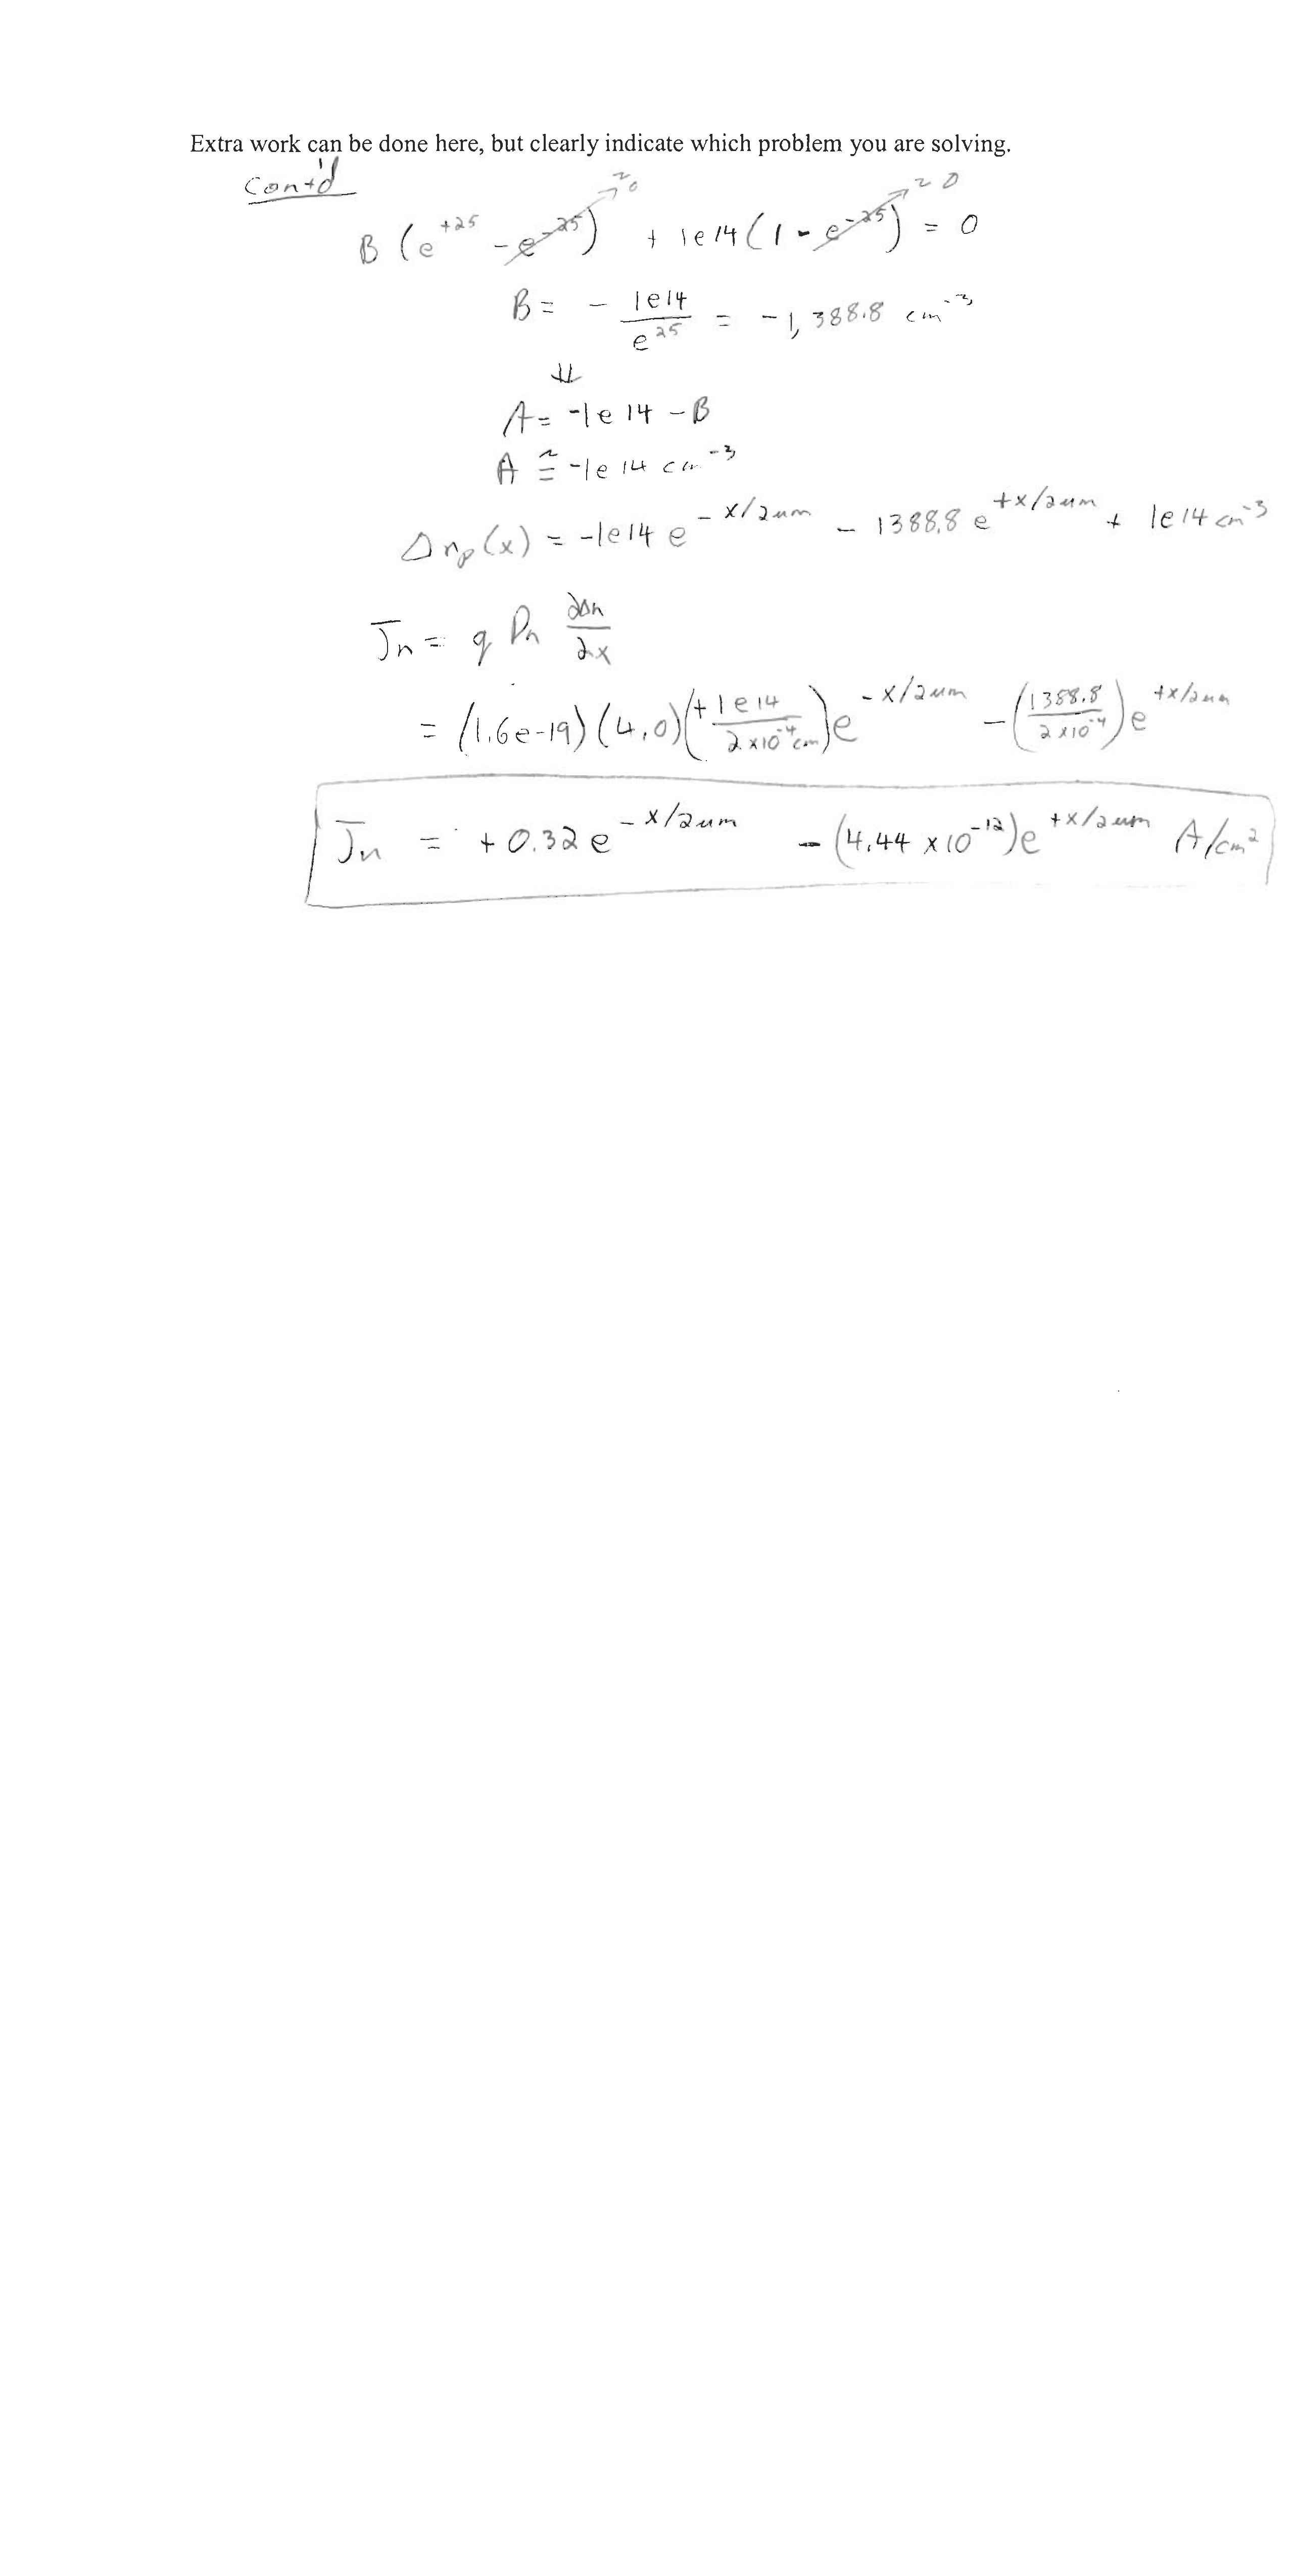 Extra work can be done here, but clearly indicate which problem you are solving.
Cont'd
B (e^{+25} - e^{-25}) → ≈ 0 + 1e14 (1 - e^{-25}) → ≈ 0 = 0
B = - 1e14 / e^{25} = -1,388.8 cm^{-3}
⇓
A = -1e14 - B
A ≅ -1e14 cm^{-3}
Δn_p(x) = -1e14 e^{-x/2um} - 1388.8 e^{+x/2um} + 1e14 cm^{-3}
J_n = q D_n ∂Δn/∂x
= (1.6e-19)(4.0)(+1e14 / 2x10^{-4} cm) e^{-x/2um} - (1388.8 / 2x10^{-4}) e^{+x/2um}
J_n = +0.32 e^{-x/2um} - (4.44 x 10^{-12}) e^{+x/2um} A/cm^2